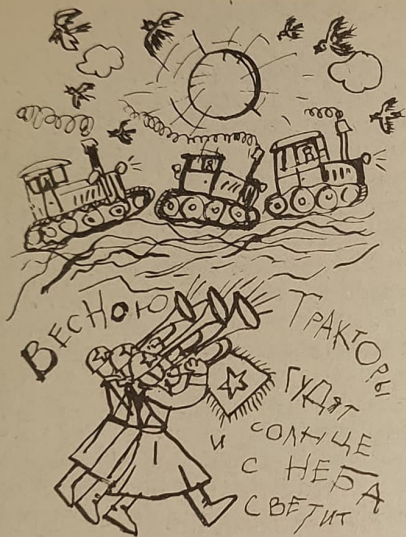 ВЕСНОЮ
ТРАКТОРЫ
ГУДЯТ
И СОЛНЦЕ
С НЕБА
СВЕТИТ